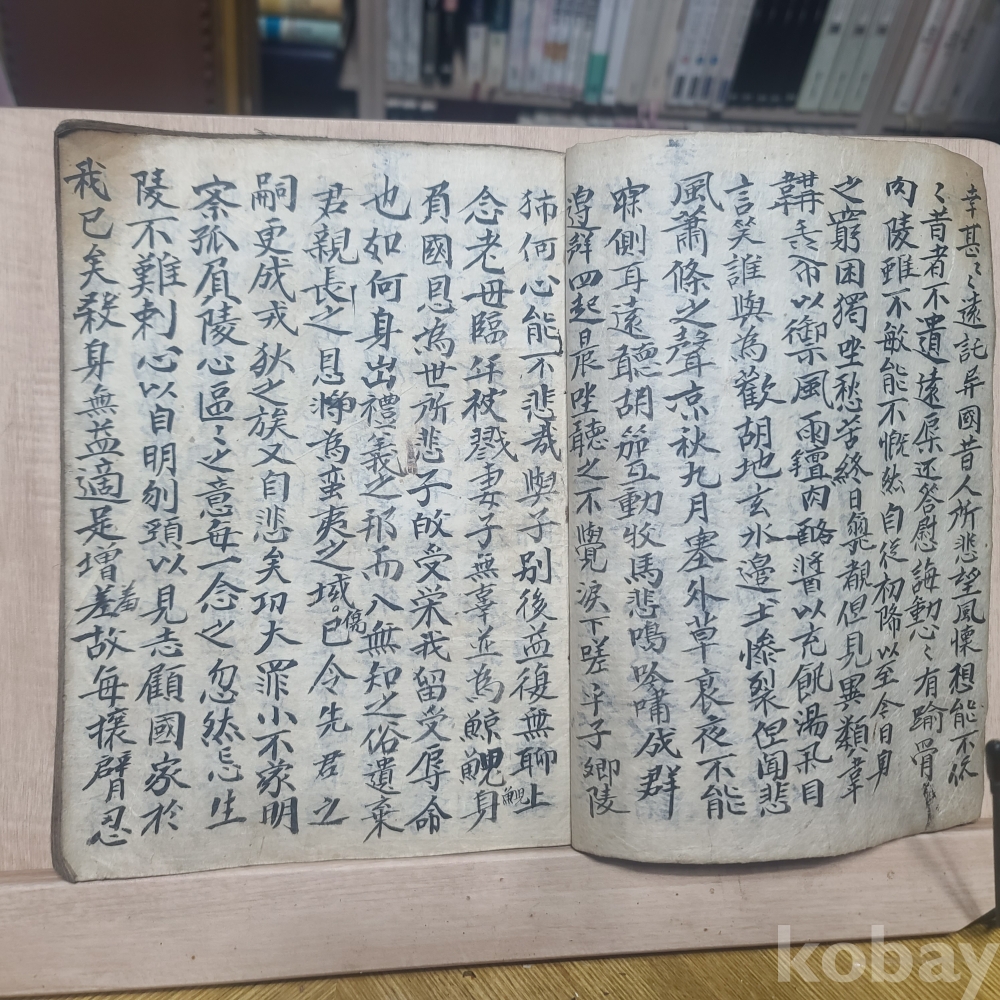 幸甚〻遠託异國昔人所悲望風懷想能不依
〻昔者不遺遠辱还答慰誨勤〻有踰骨
肉陵雖不敏能不慨然自従初降以至今日身
之窮困獨坐愁苦終日無覩但見異類韋
韝毳以御風雨羶肉酪醬以充飢湯目
言笑誰與為歡胡地玄氷邉土惨裂但闻悲
風蕭條之聲凉秋九月塞外草衰夜不能
寐側耳遠聽胡笳互動牧馬悲鳴吟嘯成群
邉聲四起晨坐聽之不覺涙下嗟乎子卿陵
独何心能不悲哉與子别後益復無聊上
念老母臨年被戮妻子無辜並為鯨身
鯢
負國恩為世所悲子敀受栄我留受辱命
也如何身出禮義之邦而入無知之俗遺棄
君親長之恩將為蛮夷之域已令先君之
傷
嗣更成戎狄之族又自悲矣功大罪小不家明
察孤負陵心區〻之意每一念之忽然忘生
陵不難刺心以自明刎頸以見志顧國家於
我已矣殺身無益適足增差故每攘臂忍
羞
kobay